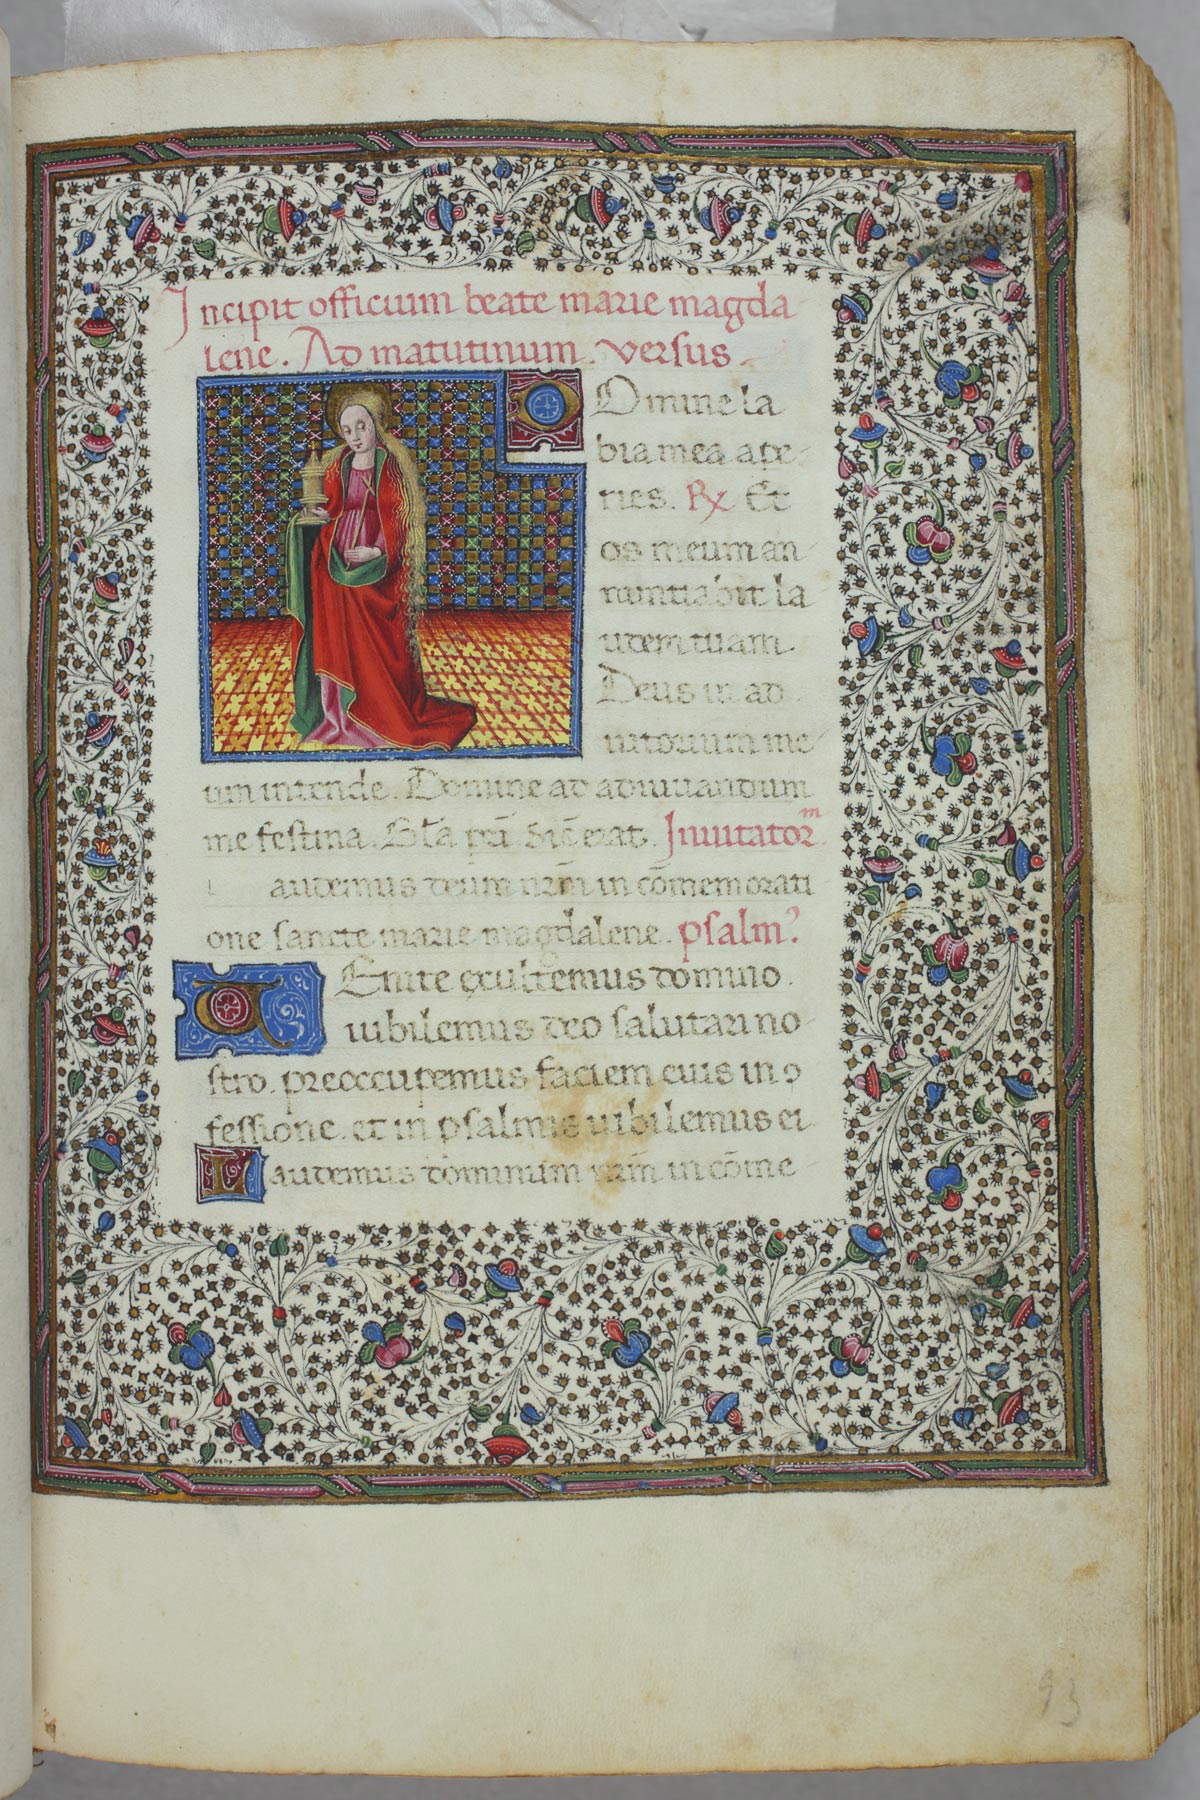 Incipit officium beate marie magda
lene. Ad matutinum. versus.
Domine la
bia mea ape
ries. Rx Et
os meum an
nuntiabit la
udem tuam.
Deus in ad
iutorium me
um intende. Domine ad adiuuandum
me festina. Gl'a pr̄i Sic̄ erat. Inuitatorm.
audemus deum nrm̄ in cōmemorati
one sancte marie magdalene. psalm9.
Venite exultemus domino.
iubilemus deo salutari no
stro. preoccupemus faciem eius in ꝯ
fessione. et in psalmis iubilemus ei.
Laudemus dominum nrm̄ in cōme
93